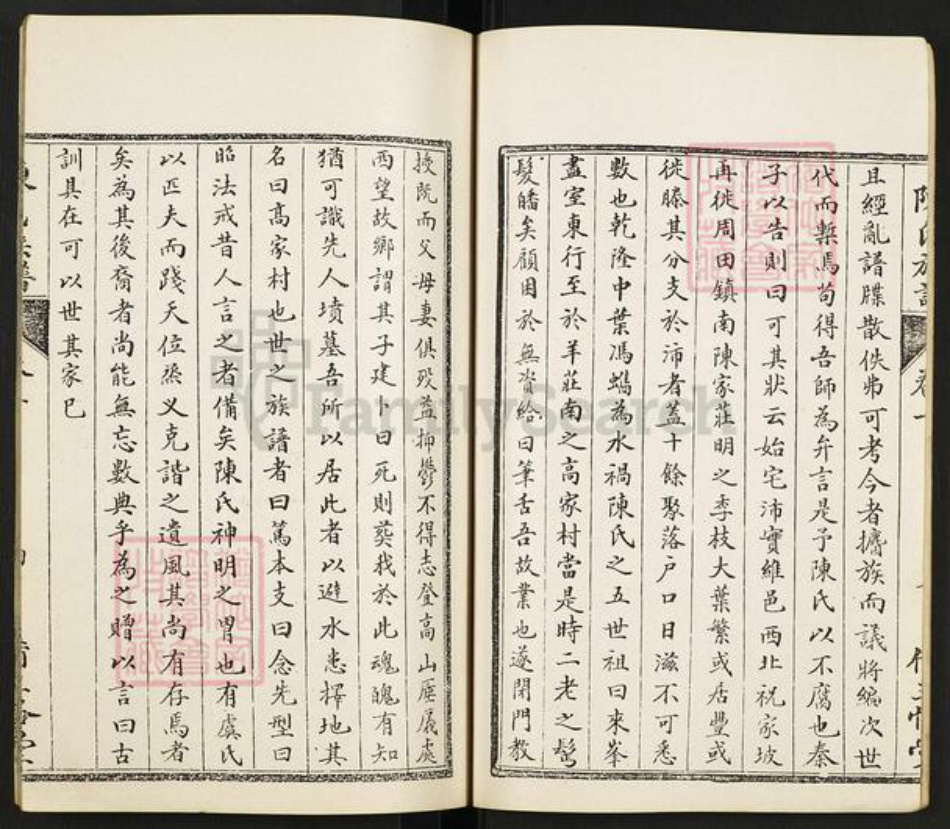 且經亂譜牒散佚弗可考今者攜族而議將編次世
代而槧焉苟得吾師為弁言是予陳氏以不腐也秦
子以告則曰可其狀云始宅沛實維邑西北祝家坡
再徙周田鎮南陳家莊明之季枝大葉繁或居豐或
徙滕其分支於沛者蓋十餘聚落戶口日滋不可悉
數也乾隆中葉馮蠵為水禍陳氏之五世祖曰來峯
盡室東行至於羊莊南之高家村當是時二老之髩
髮皤矣顧困於無資給曰筆舌吾故業也遂閉門教
授既而父母妻俱歿益抑鬱不得志登高山屋處
西望故鄉謂其子建卜曰死則葬我於此魂魄有知
猶可識先人墳墓吾所以居此者以避水患擇地其
名曰高家村也世之族譜者曰篤本支曰念先型曰
昭法戒昔人言之者備矣陳氏神明之冑也有虞氏
以匹夫而踐天位烝义克諧之遺風其尚有存焉者
矣為其後裔者尚能無忘數典乎為之贈以言曰古
訓具在可以世其家已
FamilySearch